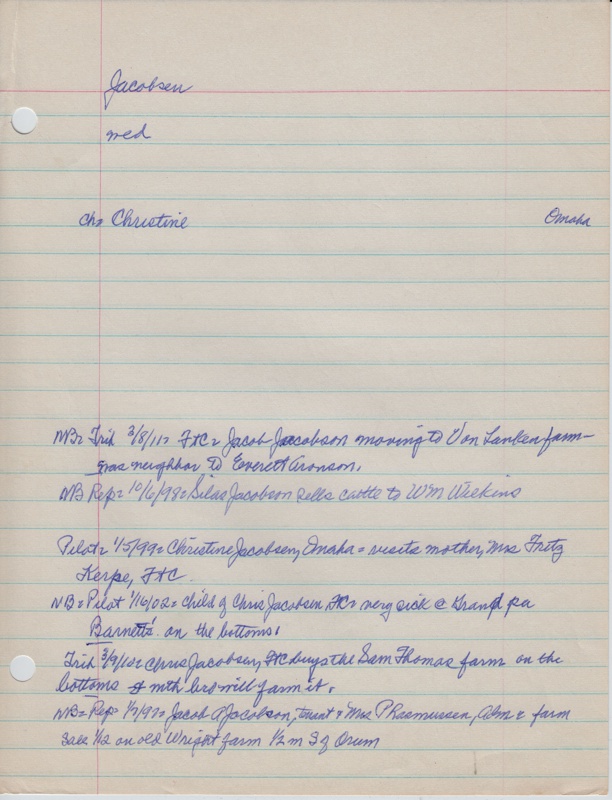 Jacobsen
med
ch= Christine Omaha
NB= Trib 3/8/11= FtC= Jacob Jacobson moving to Von Lanken farm—
was neighbor to Everett Aronson.
NB Rep= 10/6/98= Silas Jacobson sells cattle to WM Wilkins
Pilot= 1/5/99= Christine Jacobsen, Omaha= visits mother, Mrs Fritz
Kerpe, FtC.
NB= Pilot 1/16/02= child of Chris Jacobsen FtC= very sick @ Grand pa
Barnett's on the bottoms.
Trib 3/9/10= Chris Jacobsen, FtC buys the Sam Thomas farm on the
bottoms & mth bro will farm it.
NB= Rep= Jacob Jacobson, tenant & Mrs P Rasmussen, Adm= farm
Sale 1/12 on old Wright farm 1/2 m S of Orum